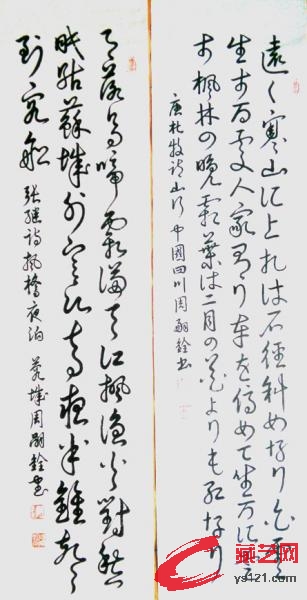 遠く寒山に上れは石徑斜めなり白雲
生する處人家有り車を停めて坐ろに愛
す楓林の晩霜葉は二月の花よりも紅なり
唐杜牧诗山行 中國四川周嗣銓书
月落烏啼霜满天江楓渔火對愁
眠姑蘇城外寒山寺夜半鐘聲
到客船 张继诗楓橋夜泊 蓉城周嗣銓书
藏艺网
ys121.com